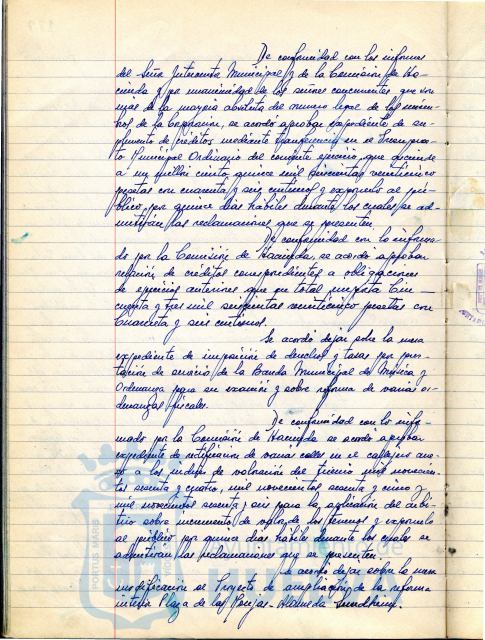 De conformidad con los informes
del Señor Interventor Municipal y de la Comisión de Ha-
cienda y por unanimidad de los señores concurrentes que son
más de la mayoría absoluta del número legal de los miem-
bros de la Corporación, se acordó aprobar expediente de su-
plemento de créditos mediante transferencia en el Presupues-
to Municipal Ordinario del corriente ejercicio, que asciende
a un millón ciento quince mil veinticinco
pesetas con cuarenta y seis céntimos y exponerlo al pú-
blico por quince días hábiles durante los cuales se ad-
mitirán las reclamaciones que se presenten.
De conformidad con lo informa-
do por la Comisión de Hacienda, se acordó aprobar
relación de créditos correspondientes a obligaciones
de ejercicios anteriores que en total importa Cin-
cuenta y tres mil veinticinco pesetas con
Cuarenta y seis céntimos.
Se acordó dejar sobre la mesa
expediente de imposición de derechos y tasas por pres-
tación de servicio de la Banda Municipal de Música y
Ordenanza para su examen y sobre reforma de varias or-
denanzas fiscales.
De conformidad con lo infor-
mado por la Comisión de Hacienda se acordó aprobar
expediente de rectificación de varias calles en el callejero ane-
xo a los índices de valoración del trienio mil novecien-
tos sesenta y cuatro, mil novecientos sesenta y cinco y
mil novecientos sesenta y seis para la aplicación del arbi-
trio sobre incremento de valor de los terrenos y exponerlo
al público por quince días hábiles durante los cuales se
admitirán las reclamaciones que se presenten.
Se acordó dejar sobre la mesa
modificación al Proyecto de ampliación de la reforma
interior Plaza de las Monjas - Alameda Sundheim.
PORTUS MARIS
de